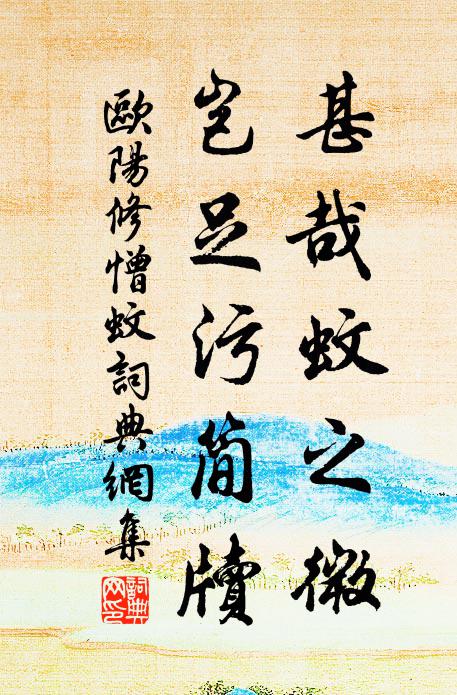 甚哉蚊之微
豈足污簡牘
歐陽修憎蚊詞典網集